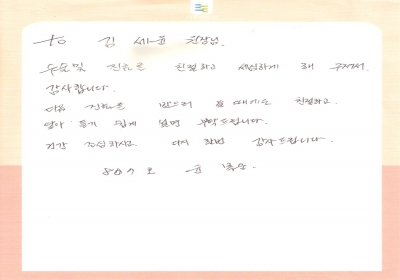 to 김세윤 원장님.
수술및 진료를 친절하고 세심하게 해 주셔서.
감사합니다.
다음 진료를 받으러 올 때에는 친절하고.
알아 듣기 쉽게 설명 부탁드립니다.
건강 조심하시고. 다시 한번 감사드립니다.
윤